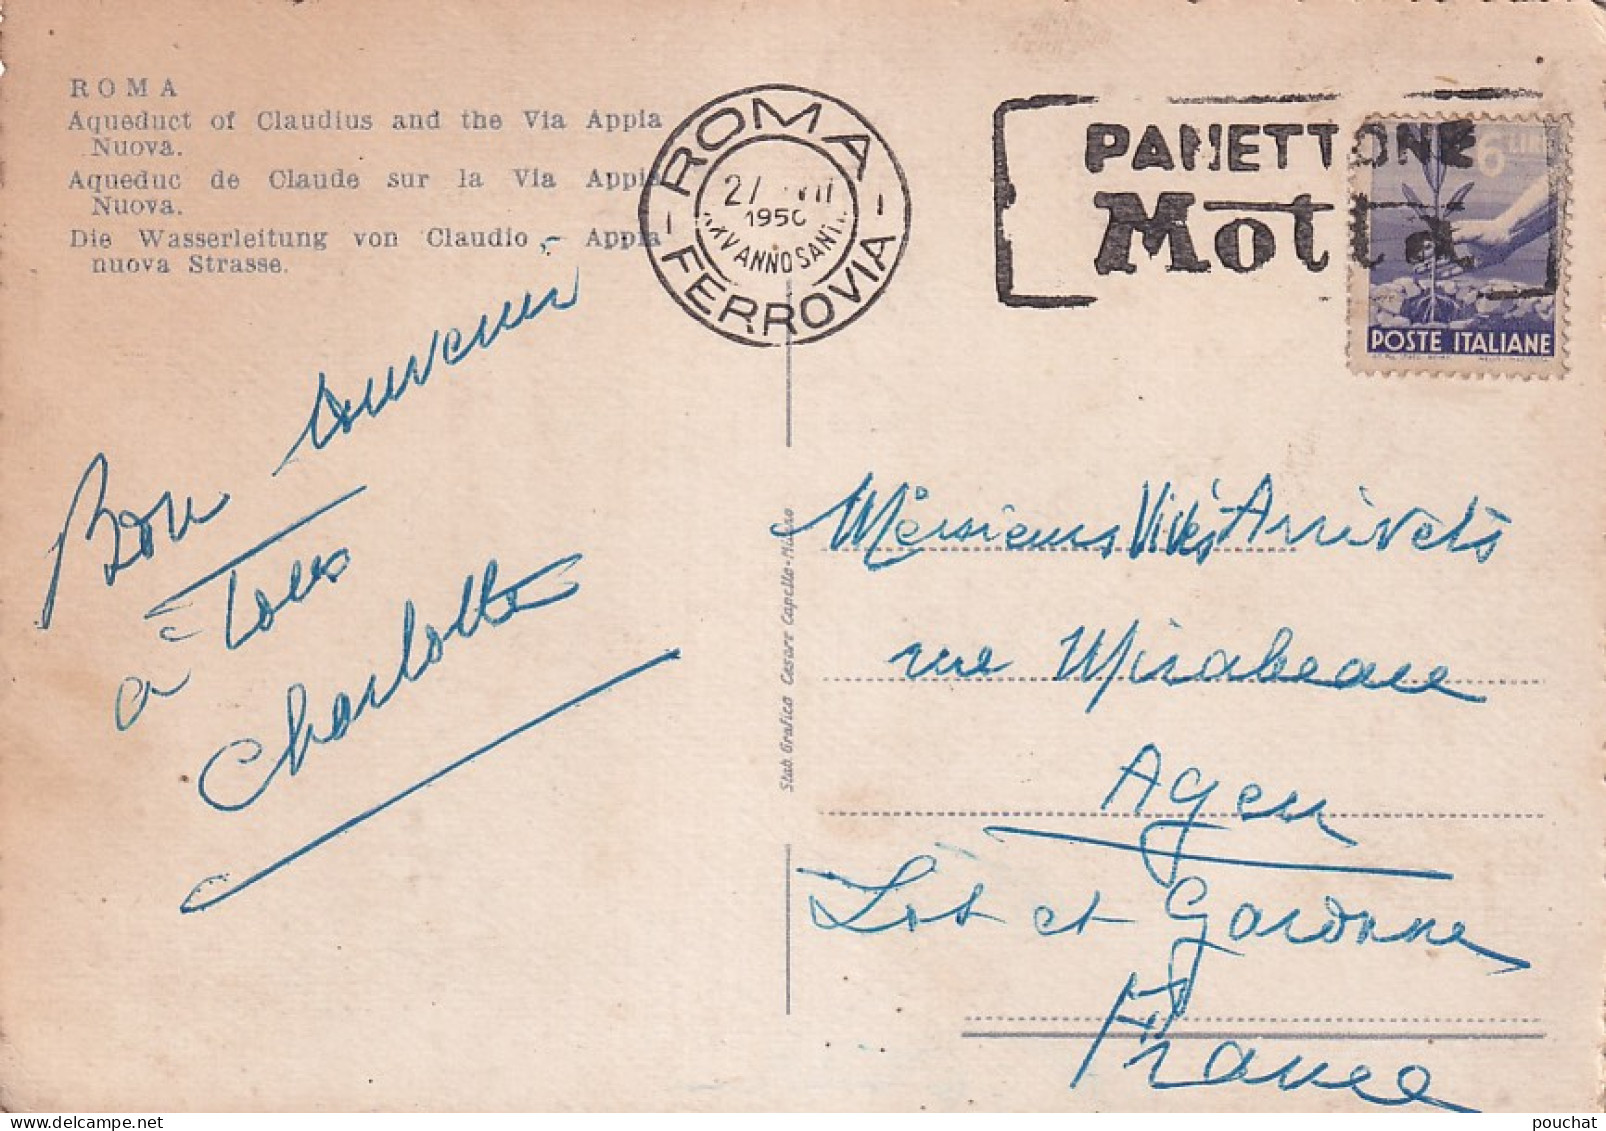 ROMA
Aqueduct of Claudius and the Via Appia
Nuova.
Aqueduc de Claude sur la Via Appia
Nuova.
Die Wasserleitung von Claudio - Appia
nuova Strasse.
ROMA
1950
XXV ANNO SANTO
- FERROVIA -
PANETTONE
Motta
6 LIRE
POSTE ITALIANE
Bon souvenir
à Tous
Charlotte
Stab. Grafico Cesare Capello - Milano
Messieurs Vivès Arrivets
rue Mirabeau
Agen
Lot et Garonne
France
pouchat